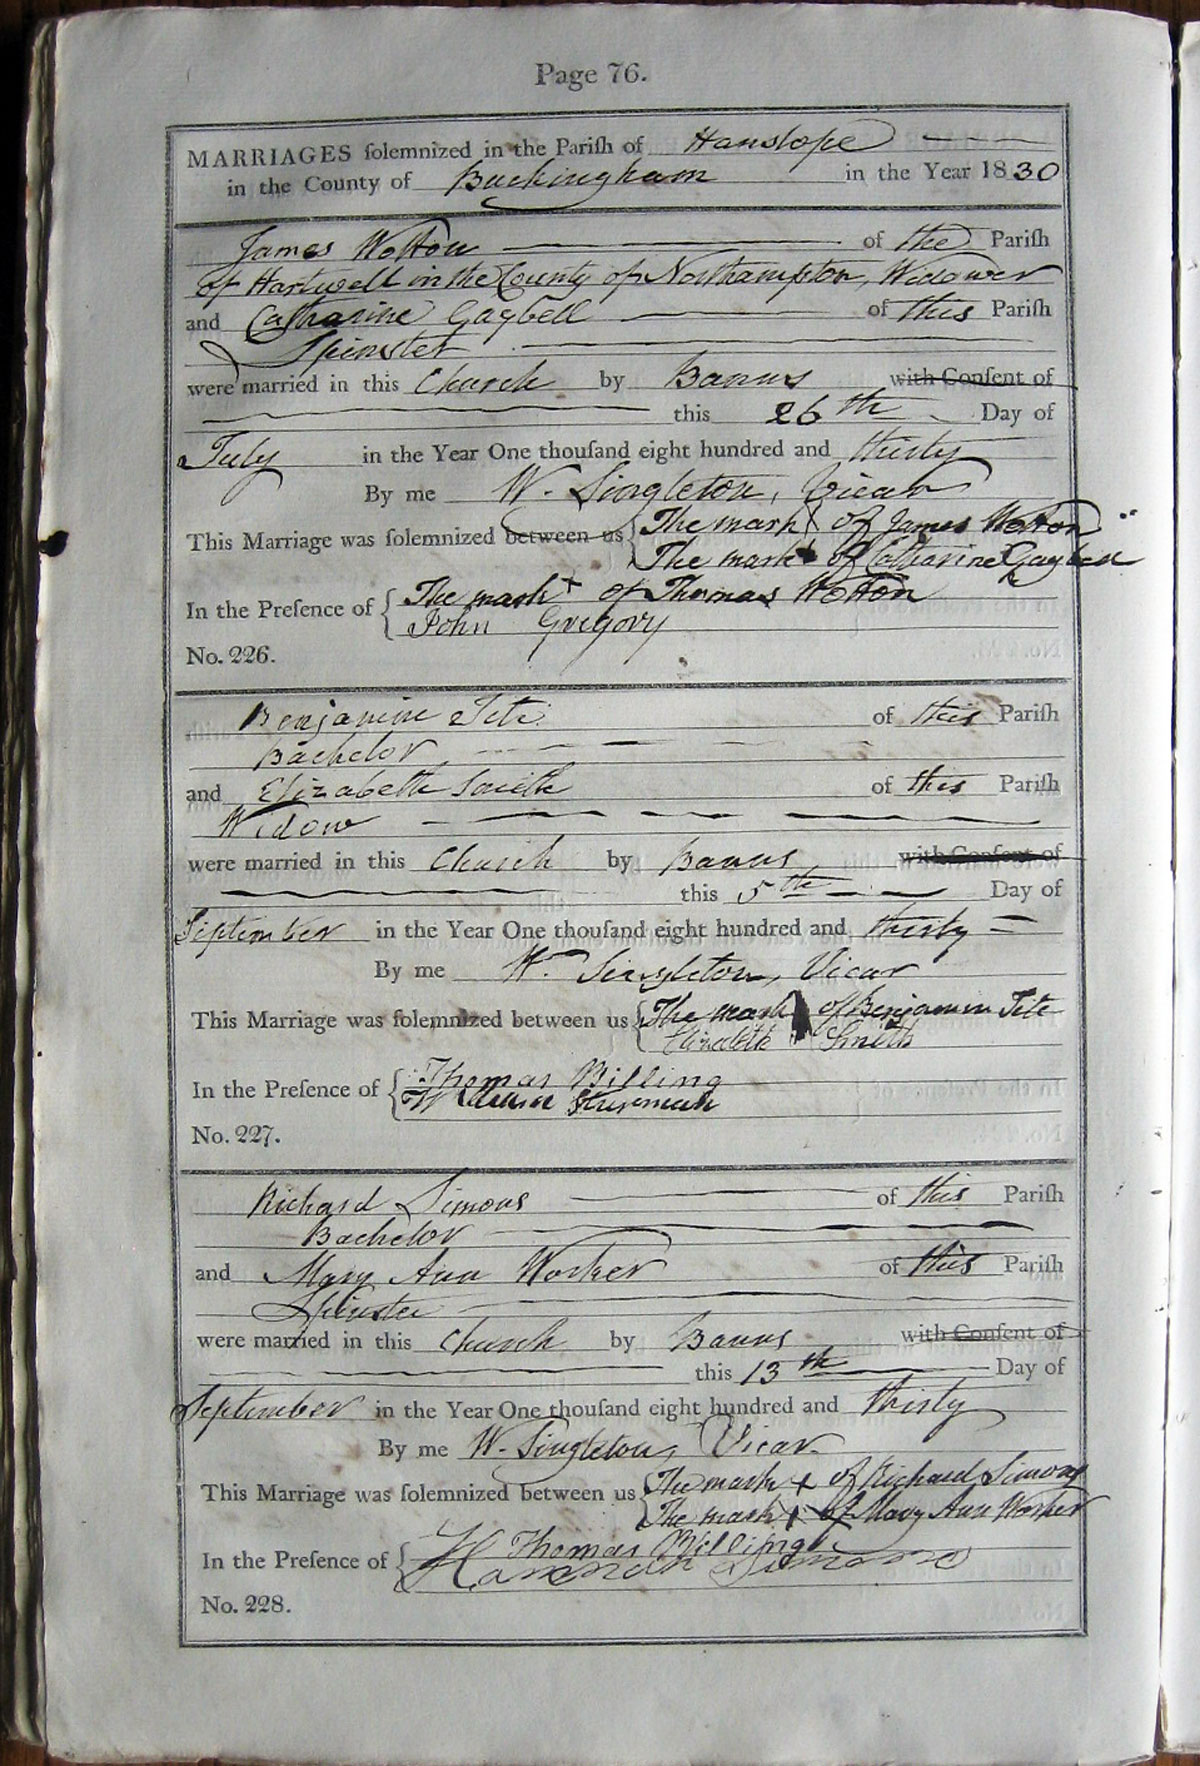 Page 76.
MARRIAGES solemnized in the Parish of Hanslope
in the County of Buckingham in the Year 1830
James Wotton of the Parish
of Hartwell in the County of Northampton, Widower
and Catharine Gaybell of this Parish
Spinster
were married in this Church by Banns with Consent of
this 26th Day of
July in the Year One thousand eight hundred and thirty
By me W. Singleton, Vicar
This Marriage was solemnized between us The mark of James Wotton
The mark + of Catharine Gaybell
In the Presence of The mark + of Thomas Wotton
John Gregory
No. 226.
Benjamine Tite of this Parish
Bachelor
and Elizabeth Smith of this Parish
Widow
were married in this Church by Banns with Consent of
this 5th Day of
September in the Year One thousand eight hundred and thirty
By me W. Singleton, Vicar
This Marriage was solemnized between us The mark of Benjamin Tite
Elizabeth Smith
In the Presence of Thomas Billing
William
No. 227.
Richard Simons of this Parish
Bachelor
and Mary Ann Worker of this Parish
Spinster
were married in this Church by Banns with Consent of
this 13th Day of
September in the Year One thousand eight hundred and thirty
By me W. Singleton, Vicar.
This Marriage was solemnized between us The mark + of Richard Simons
The mark + of Mary Ann Worker
In the Presence of Thomas Billing
Hannah Simons
No. 228.